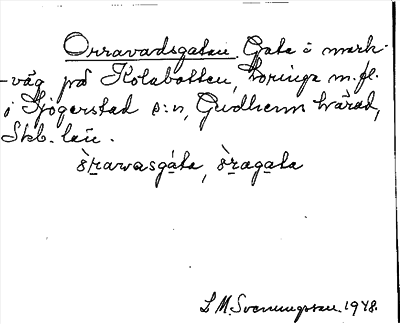 Orravadsgatan. Gata å mark-
-väg på Kolabotten, Toringa m.fl.
i Sjögerstad s:n, Gudhem härad,
Skb. län.
òrawasgáta, òragata
L M. Svenungsson. 1948.